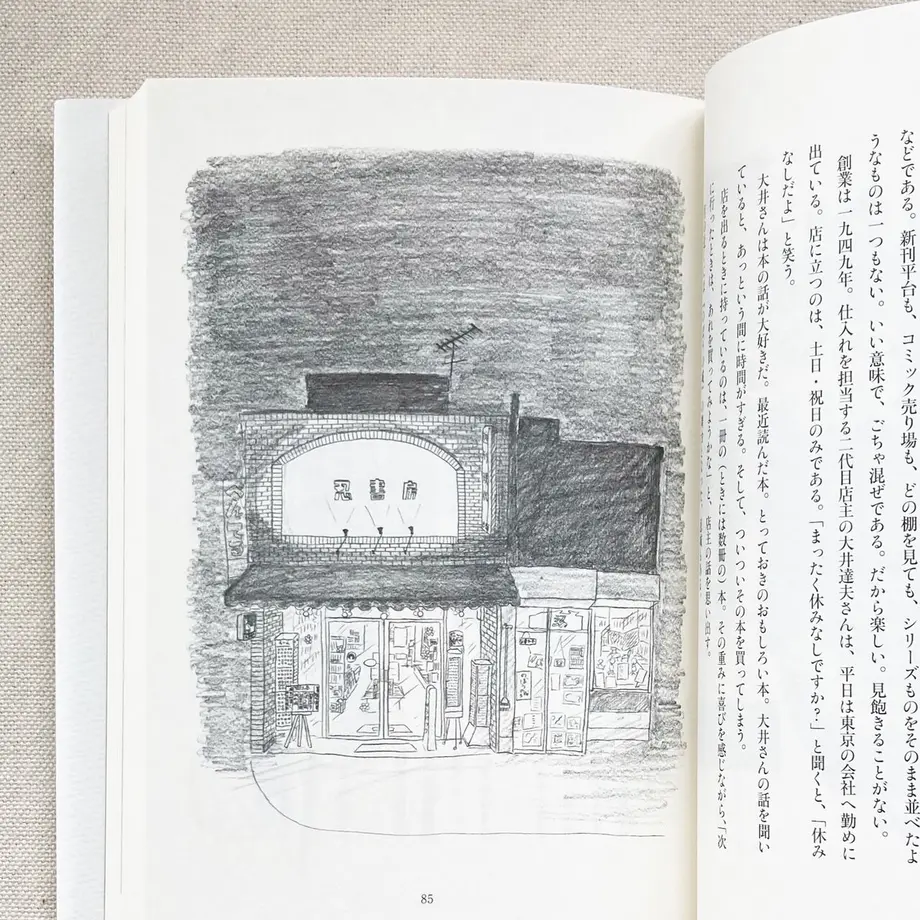 などである。新刊平台も、コミック売り場も、どの棚を見ても、シリーズものをそのまま並べたよ
うなものは一つもない。いい意味で、ごちゃ混ぜである。だから楽しい。見飽きることがない。
創業は一九四九年。仕入れを担当する二代目店主の大井達夫さんは、平日は東京の会社へ勤めに
出ている。店に立つのは、土日・祝日のみである。「まったく休みなしですか?」と聞くと、「休み
なしだよ」と笑う。
大井さんは本の話が大好きだ。最近読んだ本。とっておきのおもしろい本。大井さんの話を聞い
ていると、あっという間に時間がすぎる。そして、ついついその本を買ってしまう。
店を出るときに持っているのは、一冊の(ときには数冊の)本。その重みに喜びを感じながら、「次
に行ったときは、あれを買ってみようかな」と、店主の話を思い出す。
忍書房
85